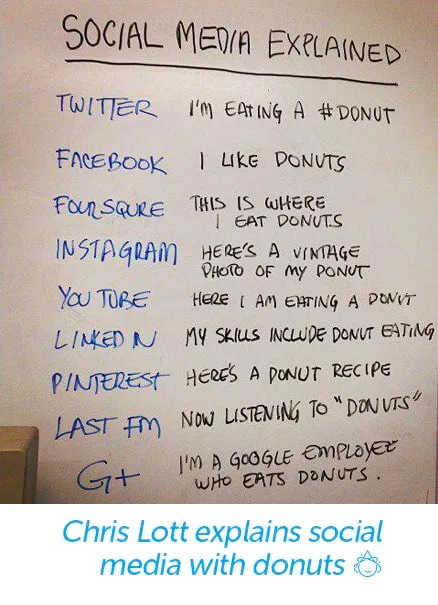 SOCIAL MEDIA EXPLAINED
TWITTER I'M EATING A #DONUT
FACEBOOK I LIKE DONUTS
FOURSQURE THIS IS WHERE
I EAT DONUTS
INSTAGRAM HERE'S A VINTAGE
PHOTO OF MY DONUT
YOU TUBE HERE I AM EATING A DONUT
LINKED IN MY SKILLS INCLUDE DONUT EATING
PINTEREST HERE'S A DONUT RECIPE
LAST FM NOW LISTENING TO "DONUTS"
G+ I'M A GOOGLE EMPLOYEE
WHO EATS DONUTS.
Chris Lott explains social
media with donuts